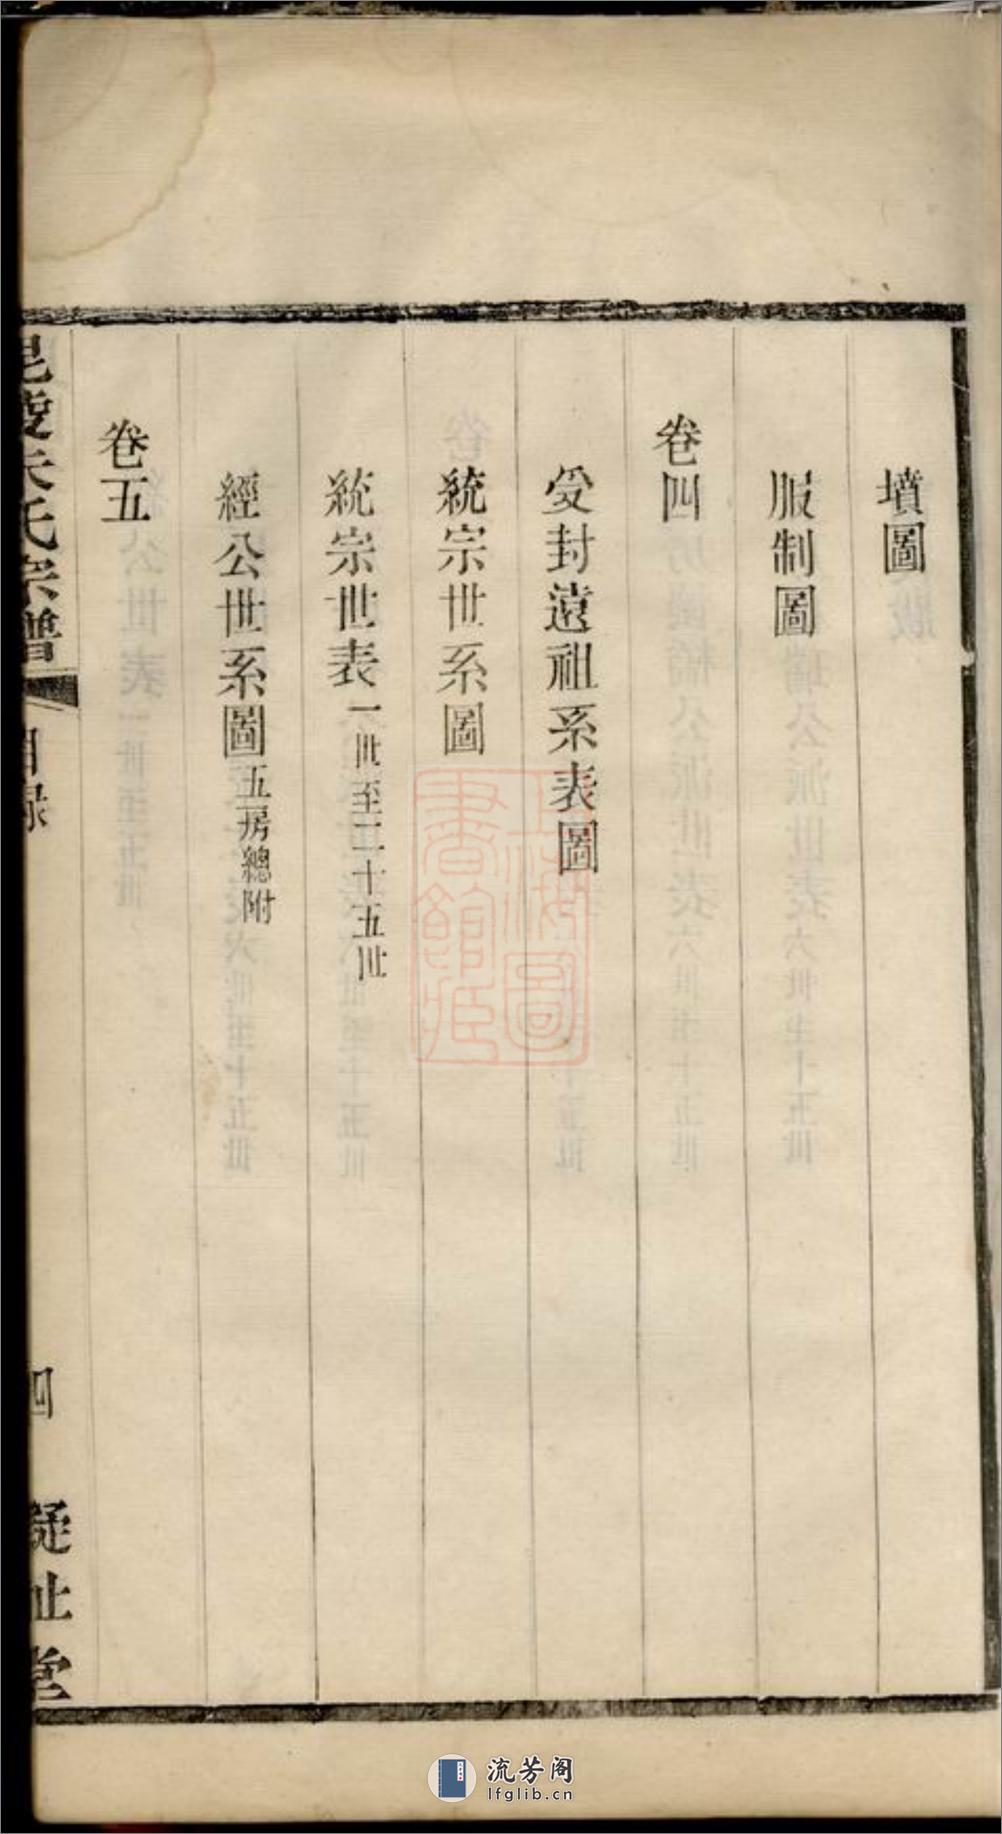 墳圖
服制圖
卷四
受封遠祖系表圖
統宗世系圖
統宗世表一世至二十五世
經公世系圖五房總附
卷五
毘陵朱氏宗譜 目録 四 凝祉堂
上海圖書館藏
流芳阁
lfglib.cn